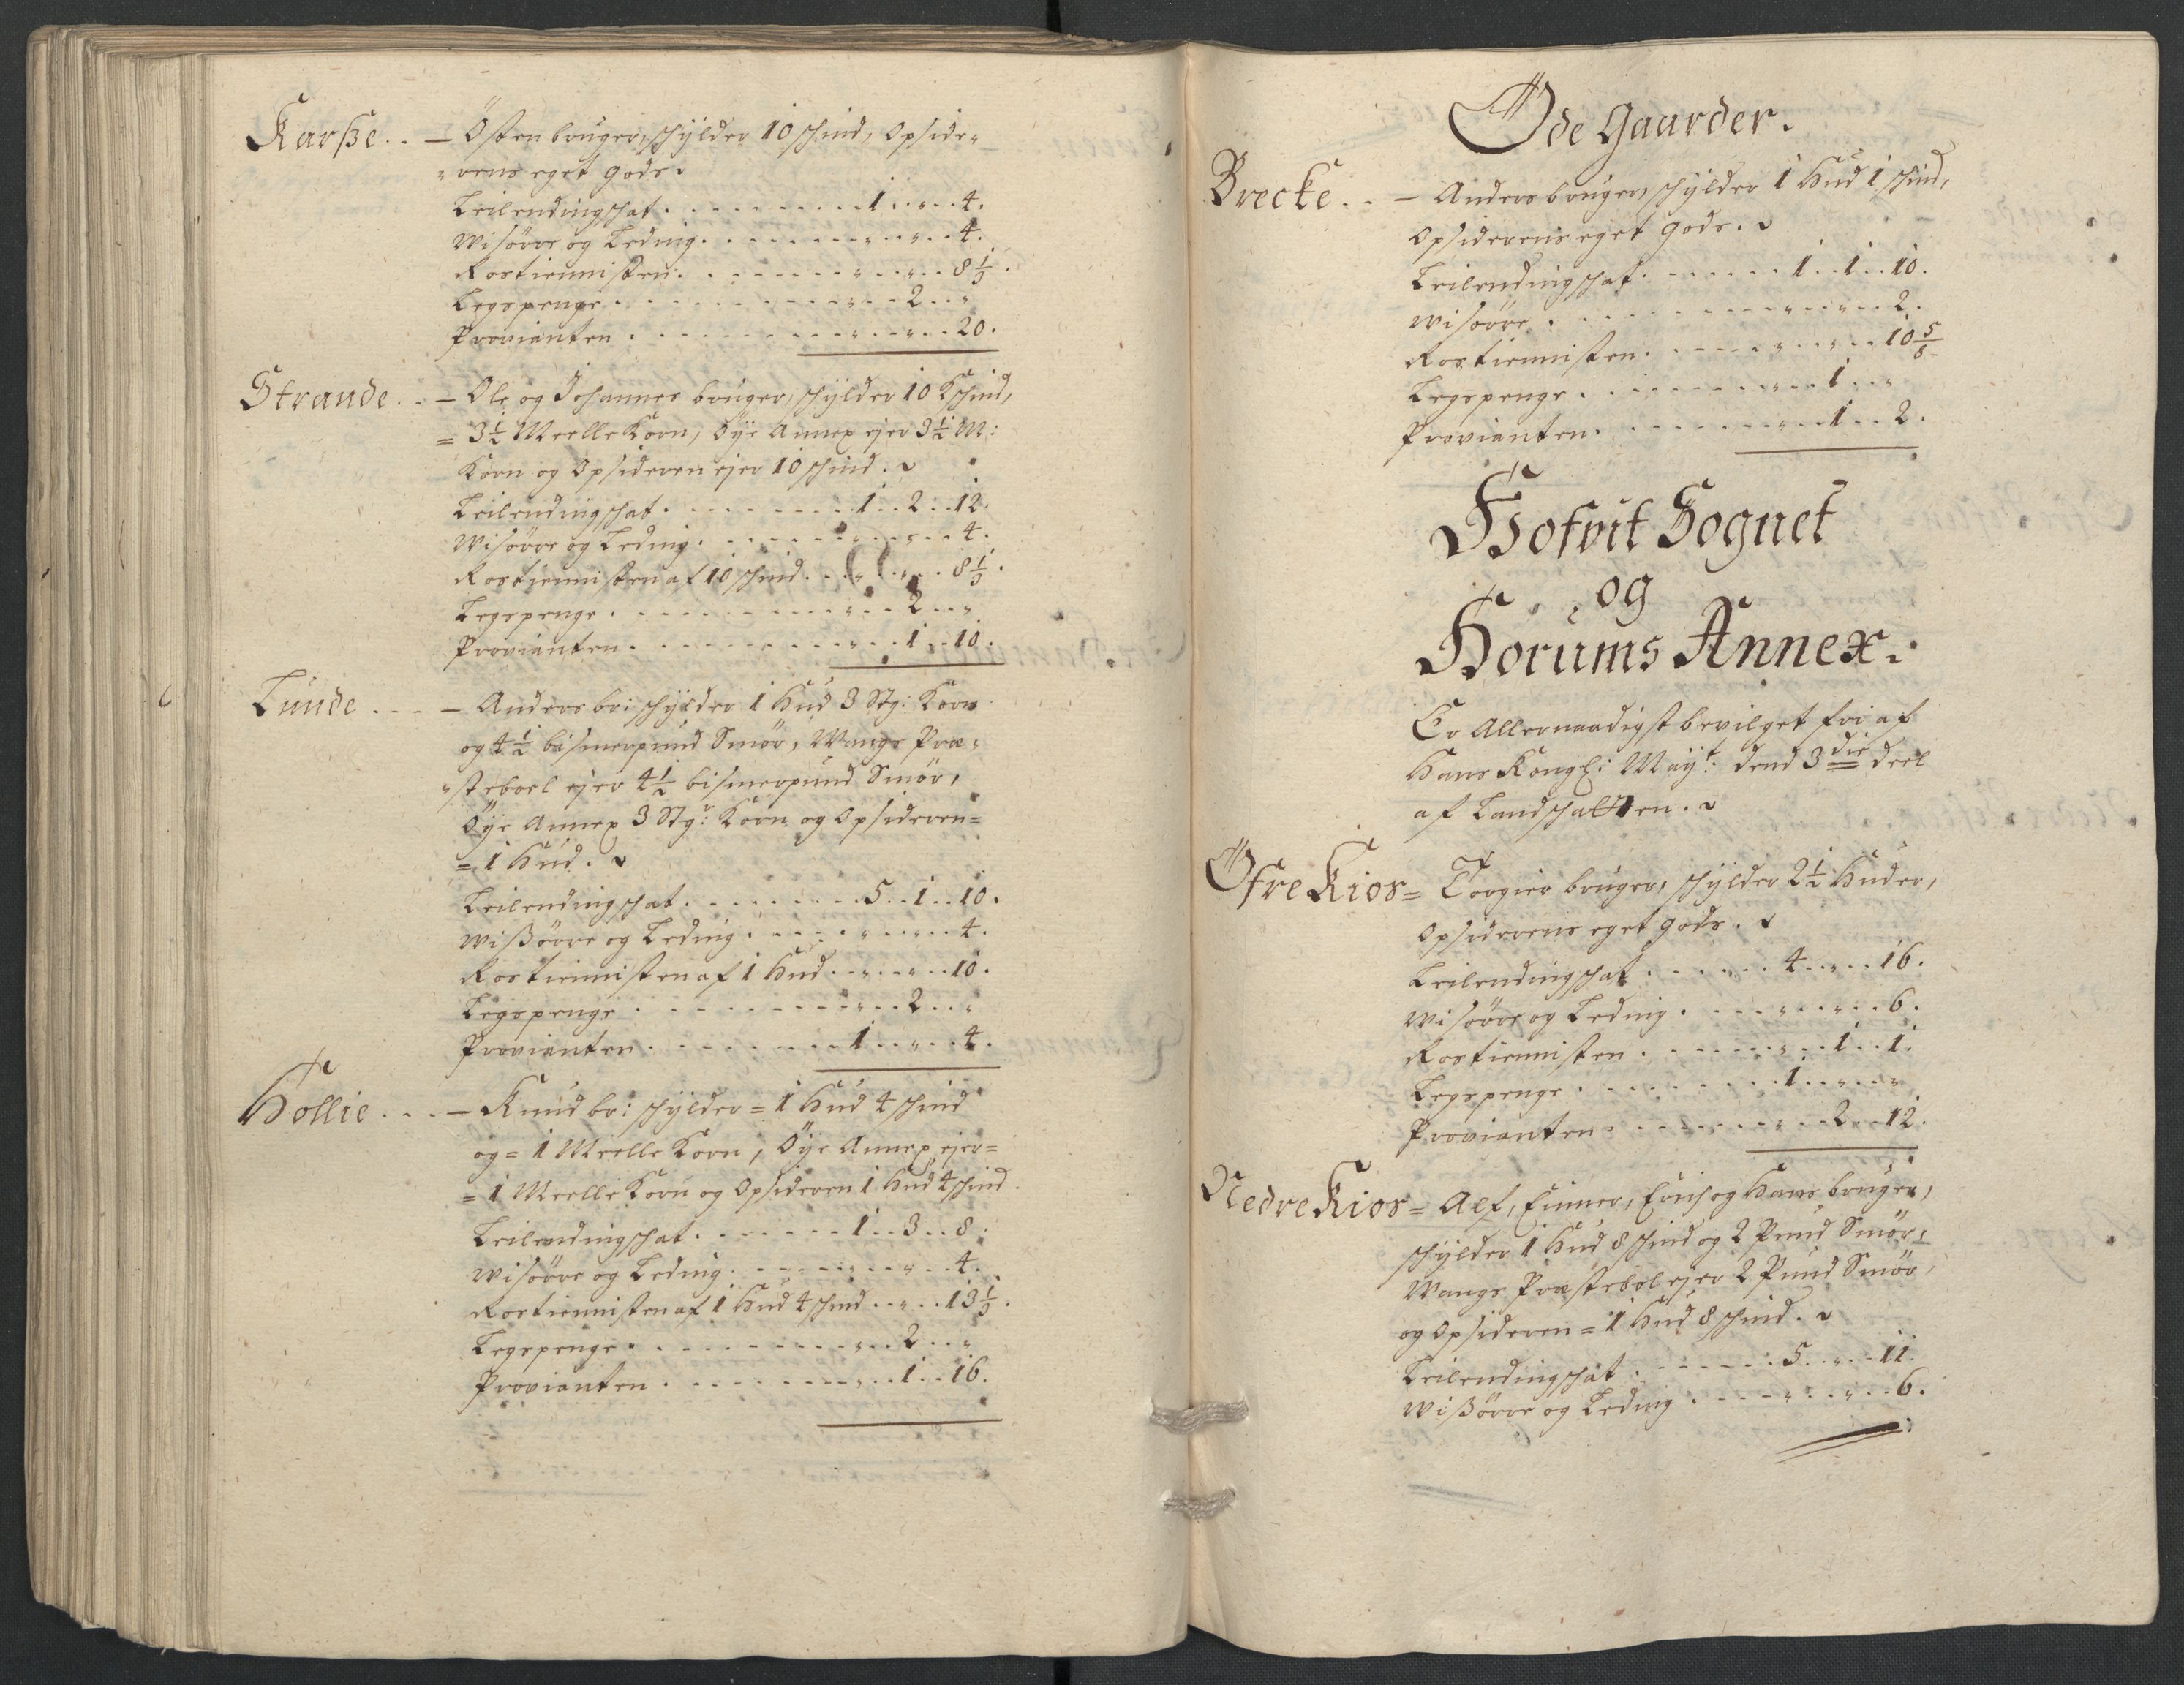 Karße . . — Östen bruger, schylder 10 schind, Opside-
rens eget gods.
Leilendingschat . . . . 1 . . " . . 4.
Wisörre og Leding . . . . " . . " . . 4.
Rostiennisten . . . . " . . " . . 8 1/3.
Legspenge . . . . " . . 2 . . "
Provianten . . . . " . . " . . 20.
Strande . . — Ole og Johannes bruger, schylder 10 Kschind,
= 3 1/2 Meelle Korn, Öye Annex ejer 3 1/2 M:
Korn og Opsideren ejer 10 schind.
Leilendingschat . . . . 1 . . 2 . . 12.
Wisörre og Leding . . . . " . . " . . 4.
Rostiennisten af 10 schind . . " . . " . . 8 1/3.
Legspenge . . . . " . . 2 . . "
Provianten . . . . " . . 1 . . 10.
Lunde . . . — Anders br: schylder 1 Hud 3 Stg: Korn
og 4 1/2 bismerpund Smör, Wangs Præ-
steboel ejer 4 1/2 bismerpund Smör,
Öye Annex 3 Stgr: Korn og Opsideren =
= 1 Hud.
Leilendingschat . . . . 5 . . 1 . . 10.
Wißörre og Leding . . . . " . . " . . 4.
Rostiennisten af 1 Hud . . " . . " . . 10.
Legspenge . . . . " . . 2 . . "
Provianten . . . . 1 . . " . . 4.
Hollie . . . — Knud br: schylder = 1 Hud 4 schind
og = 1 Meelle Korn, Öye Annex ejer =
= 1 Meelle Korn og Opsideren 1 Hud 4 schind.
Leilendingschat . . . . 1 . . 3 . . 8.
Wisörre og Leding . . . . " . . " . . 4.
Rostiennisten af 1 Hud 4 schind . . " . . 13 1/3.
Legspenge . . . . " . . 2 . . "
Provianten . . . . " . . 1 . . 16.
Öde Gaarder.
Brecke . . — Anders bruger, schylder 1 Hud 1 schind,
Opsiderens eget gods.
Leilendingschat . . . . 1 . . 1 . . 10.
Wisörre . . . . " . . " . . 2.
Rostiennisten . . . . " . . " . . 10 5/8
Legspenge . . . . " . . 1 . . "
Provianten . . . . " . . 1 . . 2.
Hofvit Sognet
og
Horums Annex.
Er Allernaadigst bevilget fri af
Hans Kongl: Mayt: dend 3die deel
af Landschatten.
Öfre Kios = Torgier bruger, schylder 2 1/2 Huder,
Opsiderens eget gods.
Leilendingschat . . . . 4 . . " . . 16.
Wisörre og Leding . . . . " . . " . . 6.
Rostiennisten . . . . " . . 1 . . 1.
Legspenge . . . . 1 . . " . . "
Provianten . . . . " . . 2 . . 12.
Nedre Kios = Alf, Einner, Erich og Hans bruger,
schylder 1 Hud 8 schind og 2 Pund Smör,
Wangs Præstebol ejer 2 Pund Smör,
og Opsideren = 1 Hud 8 schind.
Leilendingschat . . . . 5 . . " . . 11.
Wißörre og Leding . . . . " . . " . . 6.